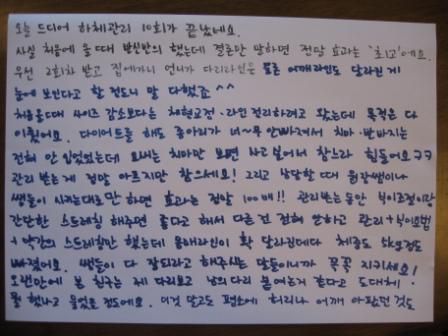 오늘 드디어 하체관리 10회가 끝났네요.
사실 처음에 올 때 반신반의 했는데 결론만 말하면 정말 효과는 '최고'에요.
우선 2회차 받고 집에가니 언니가 다리라인은 물론 어깨라인도 달라진 게
눈에 보인다고 할 정도니 말 다했죠 ^^
처음올때 사이즈 감소보다는 체형교정·라인정리하려고 왔는데 목적은 다
이뤘어요. 다이어트를 해도 종아리가 너~무 안빠져서 치마·반바지는
전혀 안 입었었는데 요새는 치마만 보면 사고싶어서 참느라 힘들어요ㅋㅋ
관리 받는게 정말 아프지만 참으세요! 그리고 상담할 때 원장쌤이나
쌤들이 시키는대로만 하면 효과는 정말 100배!! 관리받는동안 식이조절이랑
간단한 스트레칭 해주면 좋다고 해서 다른건 전혀 안하고 관리+식이요법
+ 약간의 스트레칭만 했는데 몸매라인이 확 달라진데다 체중도 5kg정도
빠졌어요. 쌤들이 다 잘되라고 해주시는 말들이니까 꼭꼭 지키세요!
오랜만에 본 친구는 제 다리보고 남의 다리 붙여논거 같다고 도대체
뭘 했냐고 물었을 정도에요. 이것 말고도 평소에 허리나 어깨 아팠던 것도